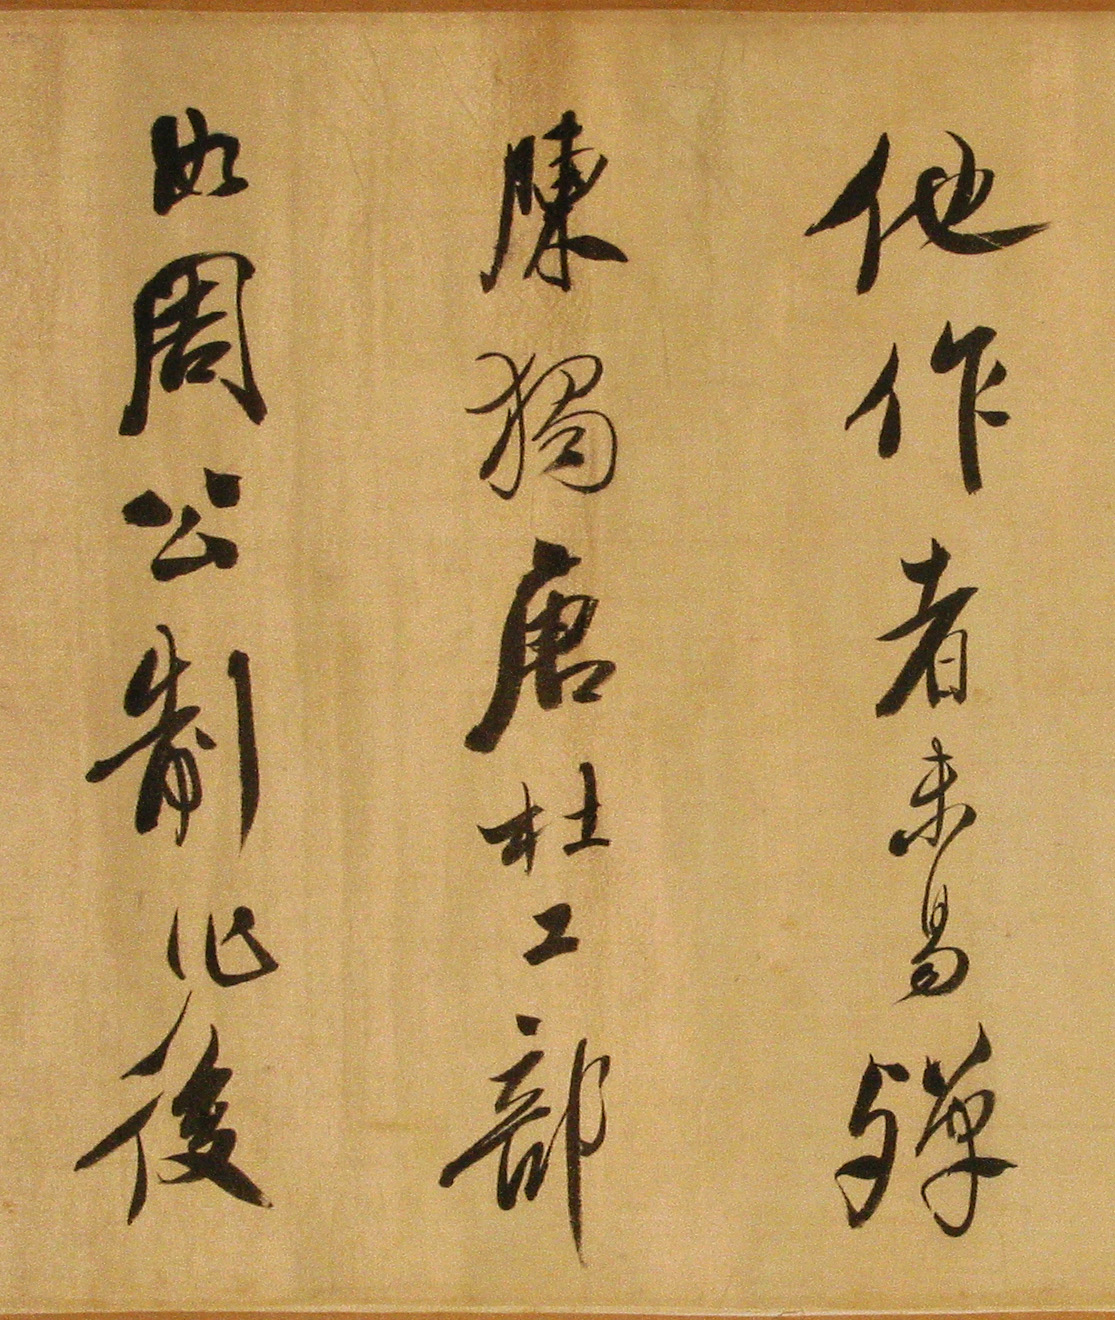 他作者未易殫
陳獨唐杜工部
如周公制作後